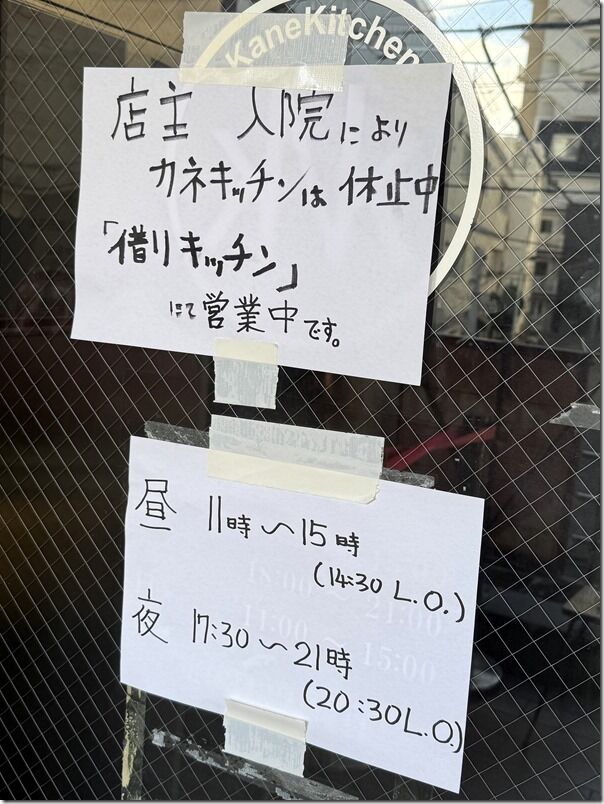 KaneKitchen
店主 入院により
カネキッチンは 休止中
「借りキッチン」
にて 営業中です。
昼 11時〜15時
(14:30 L.O.)
夜 17:30〜21時
(20:30 L.O.)
18:00〜21:00
11:00〜15:00